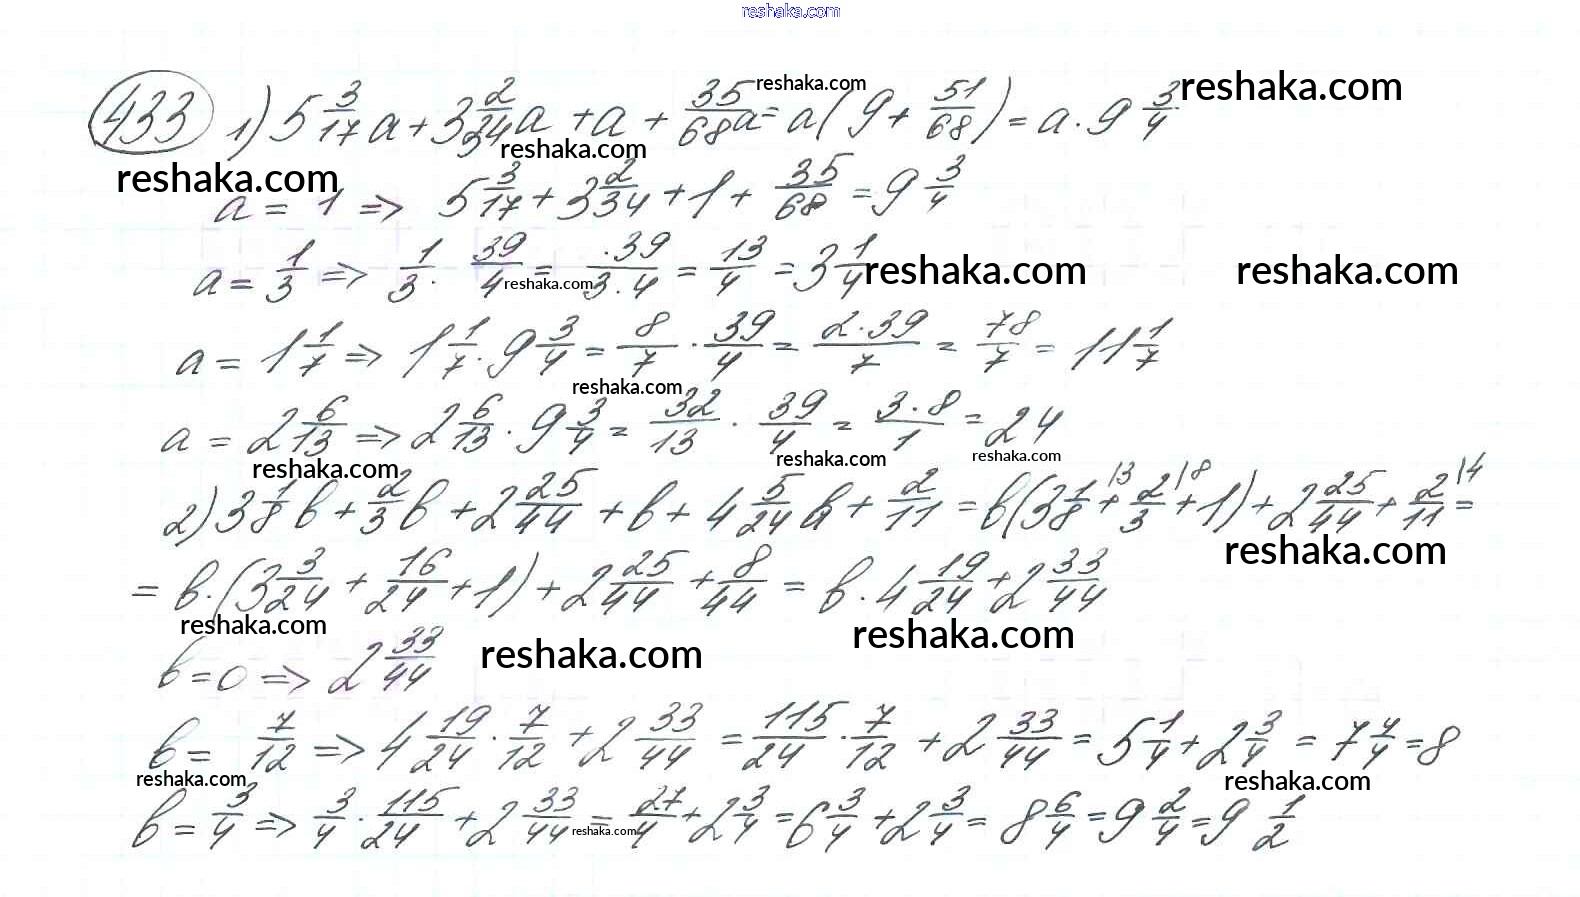 reshaka.com
433 1) 5 3/17 a + 3 2/34 a + a + 35/68 a = a(9 + 51/68) = a · 9 3/4
reshaka.com reshaka.com reshaka.com reshaka.com
a = 1 ⇒ 5 3/17 + 3 2/34 + 1 + 35/68 = 9 3/4
a = 1/3 ⇒ 1/3 · 39/4 = ·39/3·4 = 13/4 = 3 1/4
reshaka.com reshaka.com reshaka.com
a = 1 1/7 ⇒ 1 1/7 · 9 3/4 = 8/7 · 39/4 = 2·39/7 = 78/7 = 11 1/7
reshaka.com
a = 2 6/13 ⇒ 2 6/13 · 9 3/4 = 32/13 · 39/4 = 3·8/1 = 24
reshaka.com reshaka.com reshaka.com
2) 3 1/8 b + 2/3 b + 2 25/44 + b + 4 5/24 b + 2/11 = b(3 1/8 + 2/3 + 1) + 2 25/44 + 2/11 =
reshaka.com
= b · (3 3/24 + 16/24 + 1) + 2 25/44 + 8/44 = b · 4 19/24 + 2 33/44
reshaka.com reshaka.com reshaka.com
b = 0 ⇒ 2 33/44
b = 7/12 ⇒ 4 19/24 · 7/12 + 2 33/44 = 115/24 · 7/12 + 2 33/44 = 5 1/4 + 2 3/4 = 7 4/4 = 8
reshaka.com reshaka.com
b = 3/4 ⇒ 3/4 · 115/24 + 2 33/44 = 27/4 + 2 3/4 = 6 3/4 + 2 3/4 = 8 6/4 = 9 2/4 = 9 1/2
reshaka.com